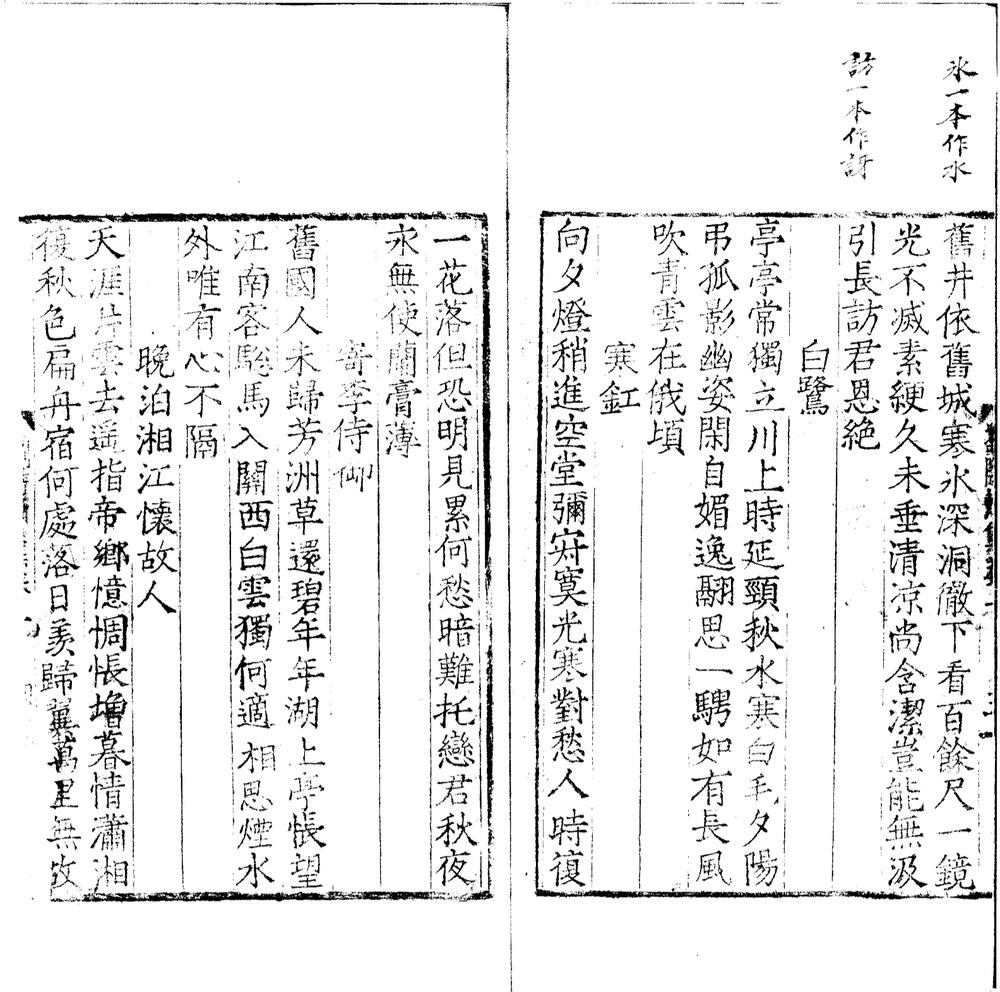 氷一本作水
訪一本作訝
舊井依舊城寒氷深洞徹下看百餘尺一鏡
光不滅素綆久未垂清涼尚含潔豈能無汲
引長訪君恩絶
白鷺
亭亭常獨立川上時延頸秋水寒白毛夕陽
弔孤影幽姿閑自媚逸翮思一騁如有長風
吹青雲在俄頃
寒釭
向夕燈稍進空堂彌寂寞光寒對愁人時復
一花落但恐明見累何愁暗難托戀君秋夜
永無使蘭膏薄
寄李侍御
舊國人未歸芳洲草還碧年年湖上亭悵望
江南客駞馬入關西白雲獨何適相思煙水
外唯有心不隔
晚泊湘江懷故人
天涯片雲去遥指帝鄉憶惆悵增暮情瀟湘
復秋色扁舟宿何處落日羨歸翼萬里無故